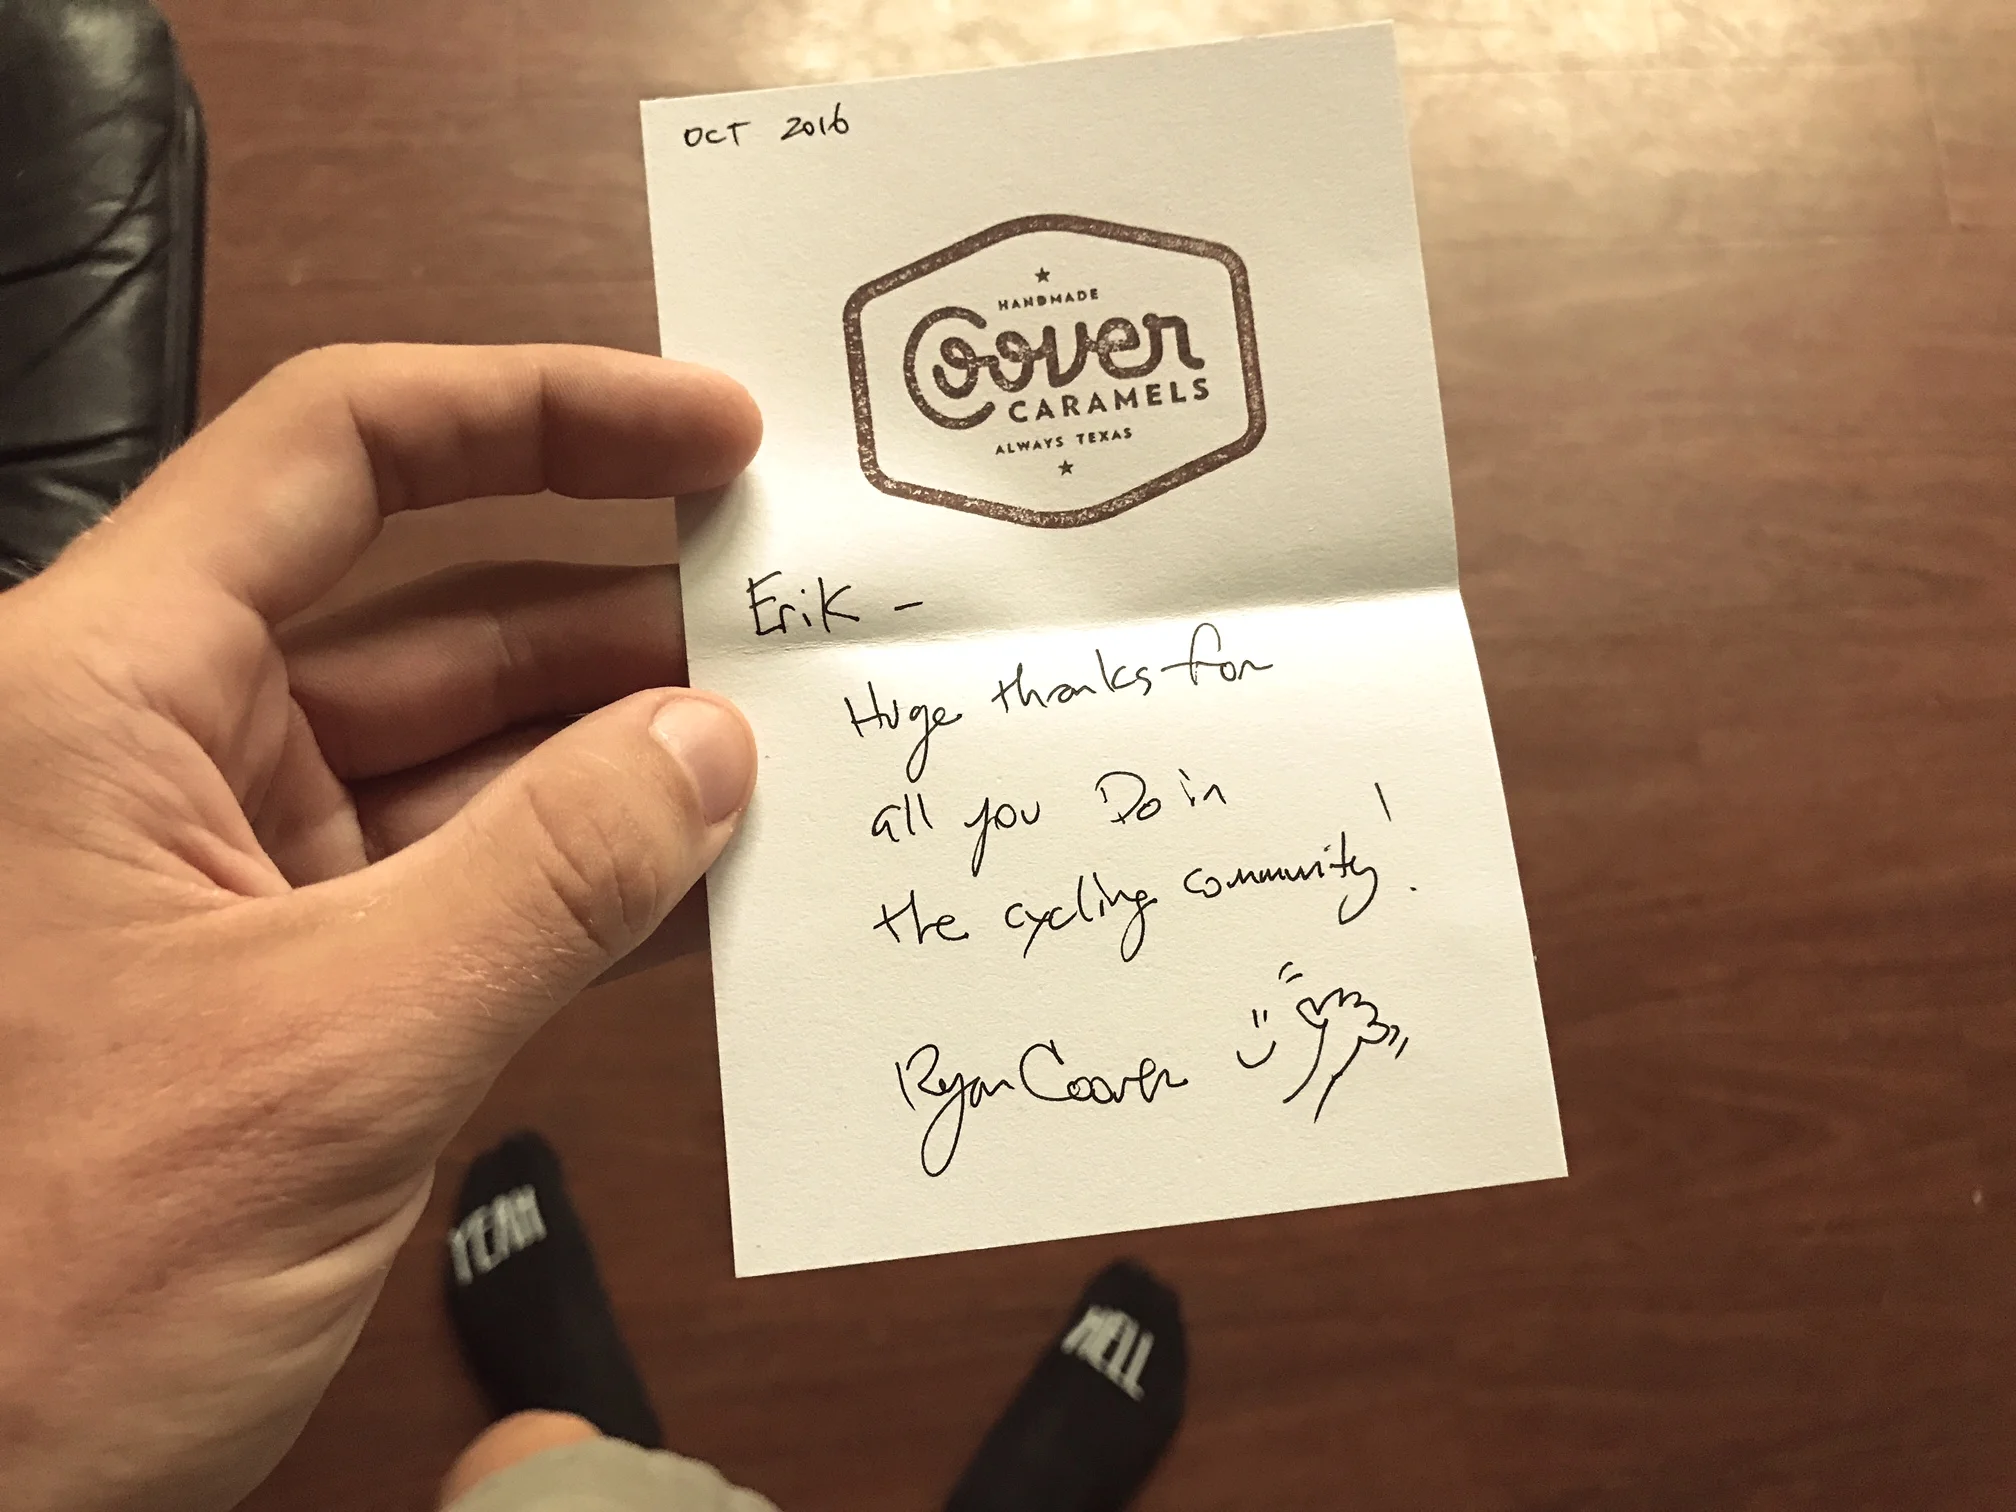 OCT 2016
HANDMADE
Coover
CARAMELS
ALWAYS TEXAS
Erik -
Huge thanks for
all you Do in
the cycling community!
Ryan Coover
YEAH
HELL